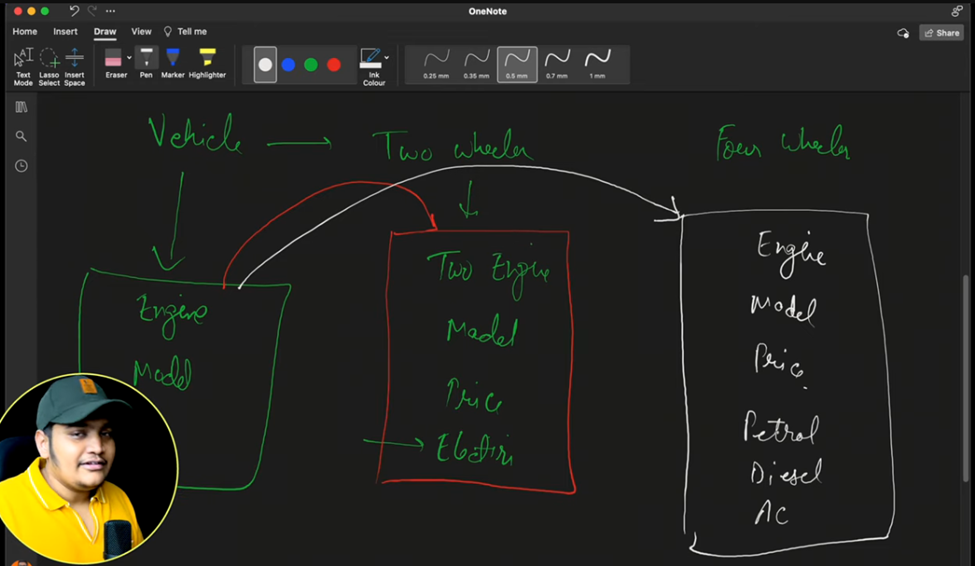 OneNote
Home Insert Draw View Tell me
Share
Text Mode
Lasso Select
Insert Space
Eraser
Pen
Marker
Highlighter
Ink Colour
0.25 mm
0.35 mm
0.5 mm
0.7 mm
1 mm
Vehicle → Two wheeler
Four wheeler
Engine
Model
Two Engine
Model
Price
→ Electiri
Engine
Model
Price
Petrol
Diesel
AC